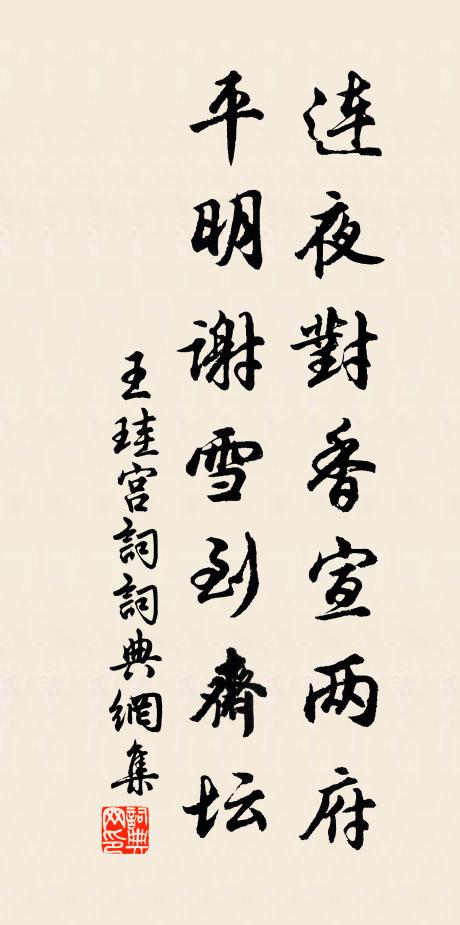 連夜對香宣两府
平明謝雪到齋坛
王珪宫詞詞典網集
詞典网印